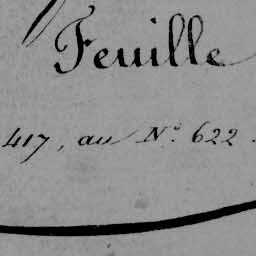 Feuille
417, au N.º 622.